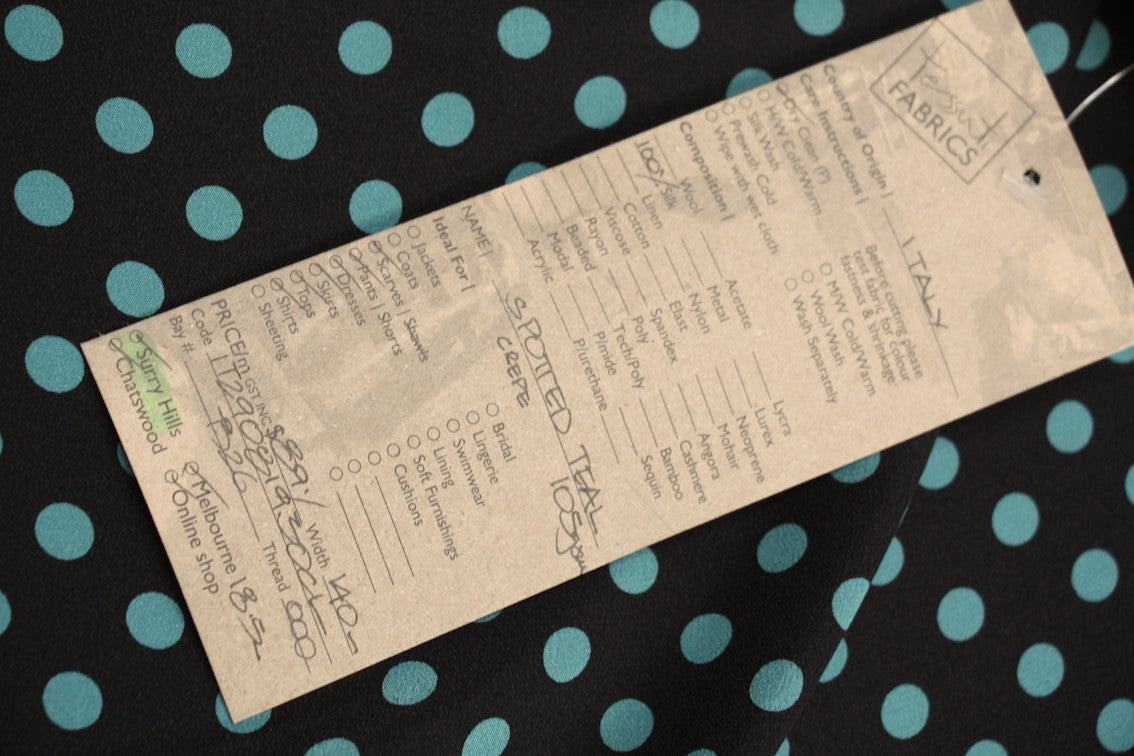 Tessuti
FABRICS
Country of Origin | ITALY
Care Instructions |
Dry Clean (P)
H/W Cold/Warm
Silk Wash
Prewash Cold
Wipe with wet cloth
Before cutting please
test fabric for colour
fastness & shrinkage
M/W Cold/Warm
Wool Wash
Wash Separately
Composition |
Wool
100% Silk
Linen
Cotton
Viscose
Rayon
Beaded
Modal
Acrylic
Acetate
Metal
Nylon
Elast
Spandex
Poly
Tech/Poly
P/mide
P/urethane
Lycra
Lurex
Neoprene
Mohair
Angora
Cashmere
Bamboo
Sequin
NAME | SPOTTED TEAL
CREPE 105gsm
Ideal For |
Jackets
Coats
Scarves | Shawls
Pants | Shorts
Dresses
Skirts
Tops
Shirts
Sheeting
Bridal
Lingerie
Swimwear
Lining
Soft Furnishings
Cushions
PRICE/m GST INC $89./ Width 140-
Code Thread 000
Bay # B26
Surry Hills
Chatswood
Melbourne 18.5
Online shop